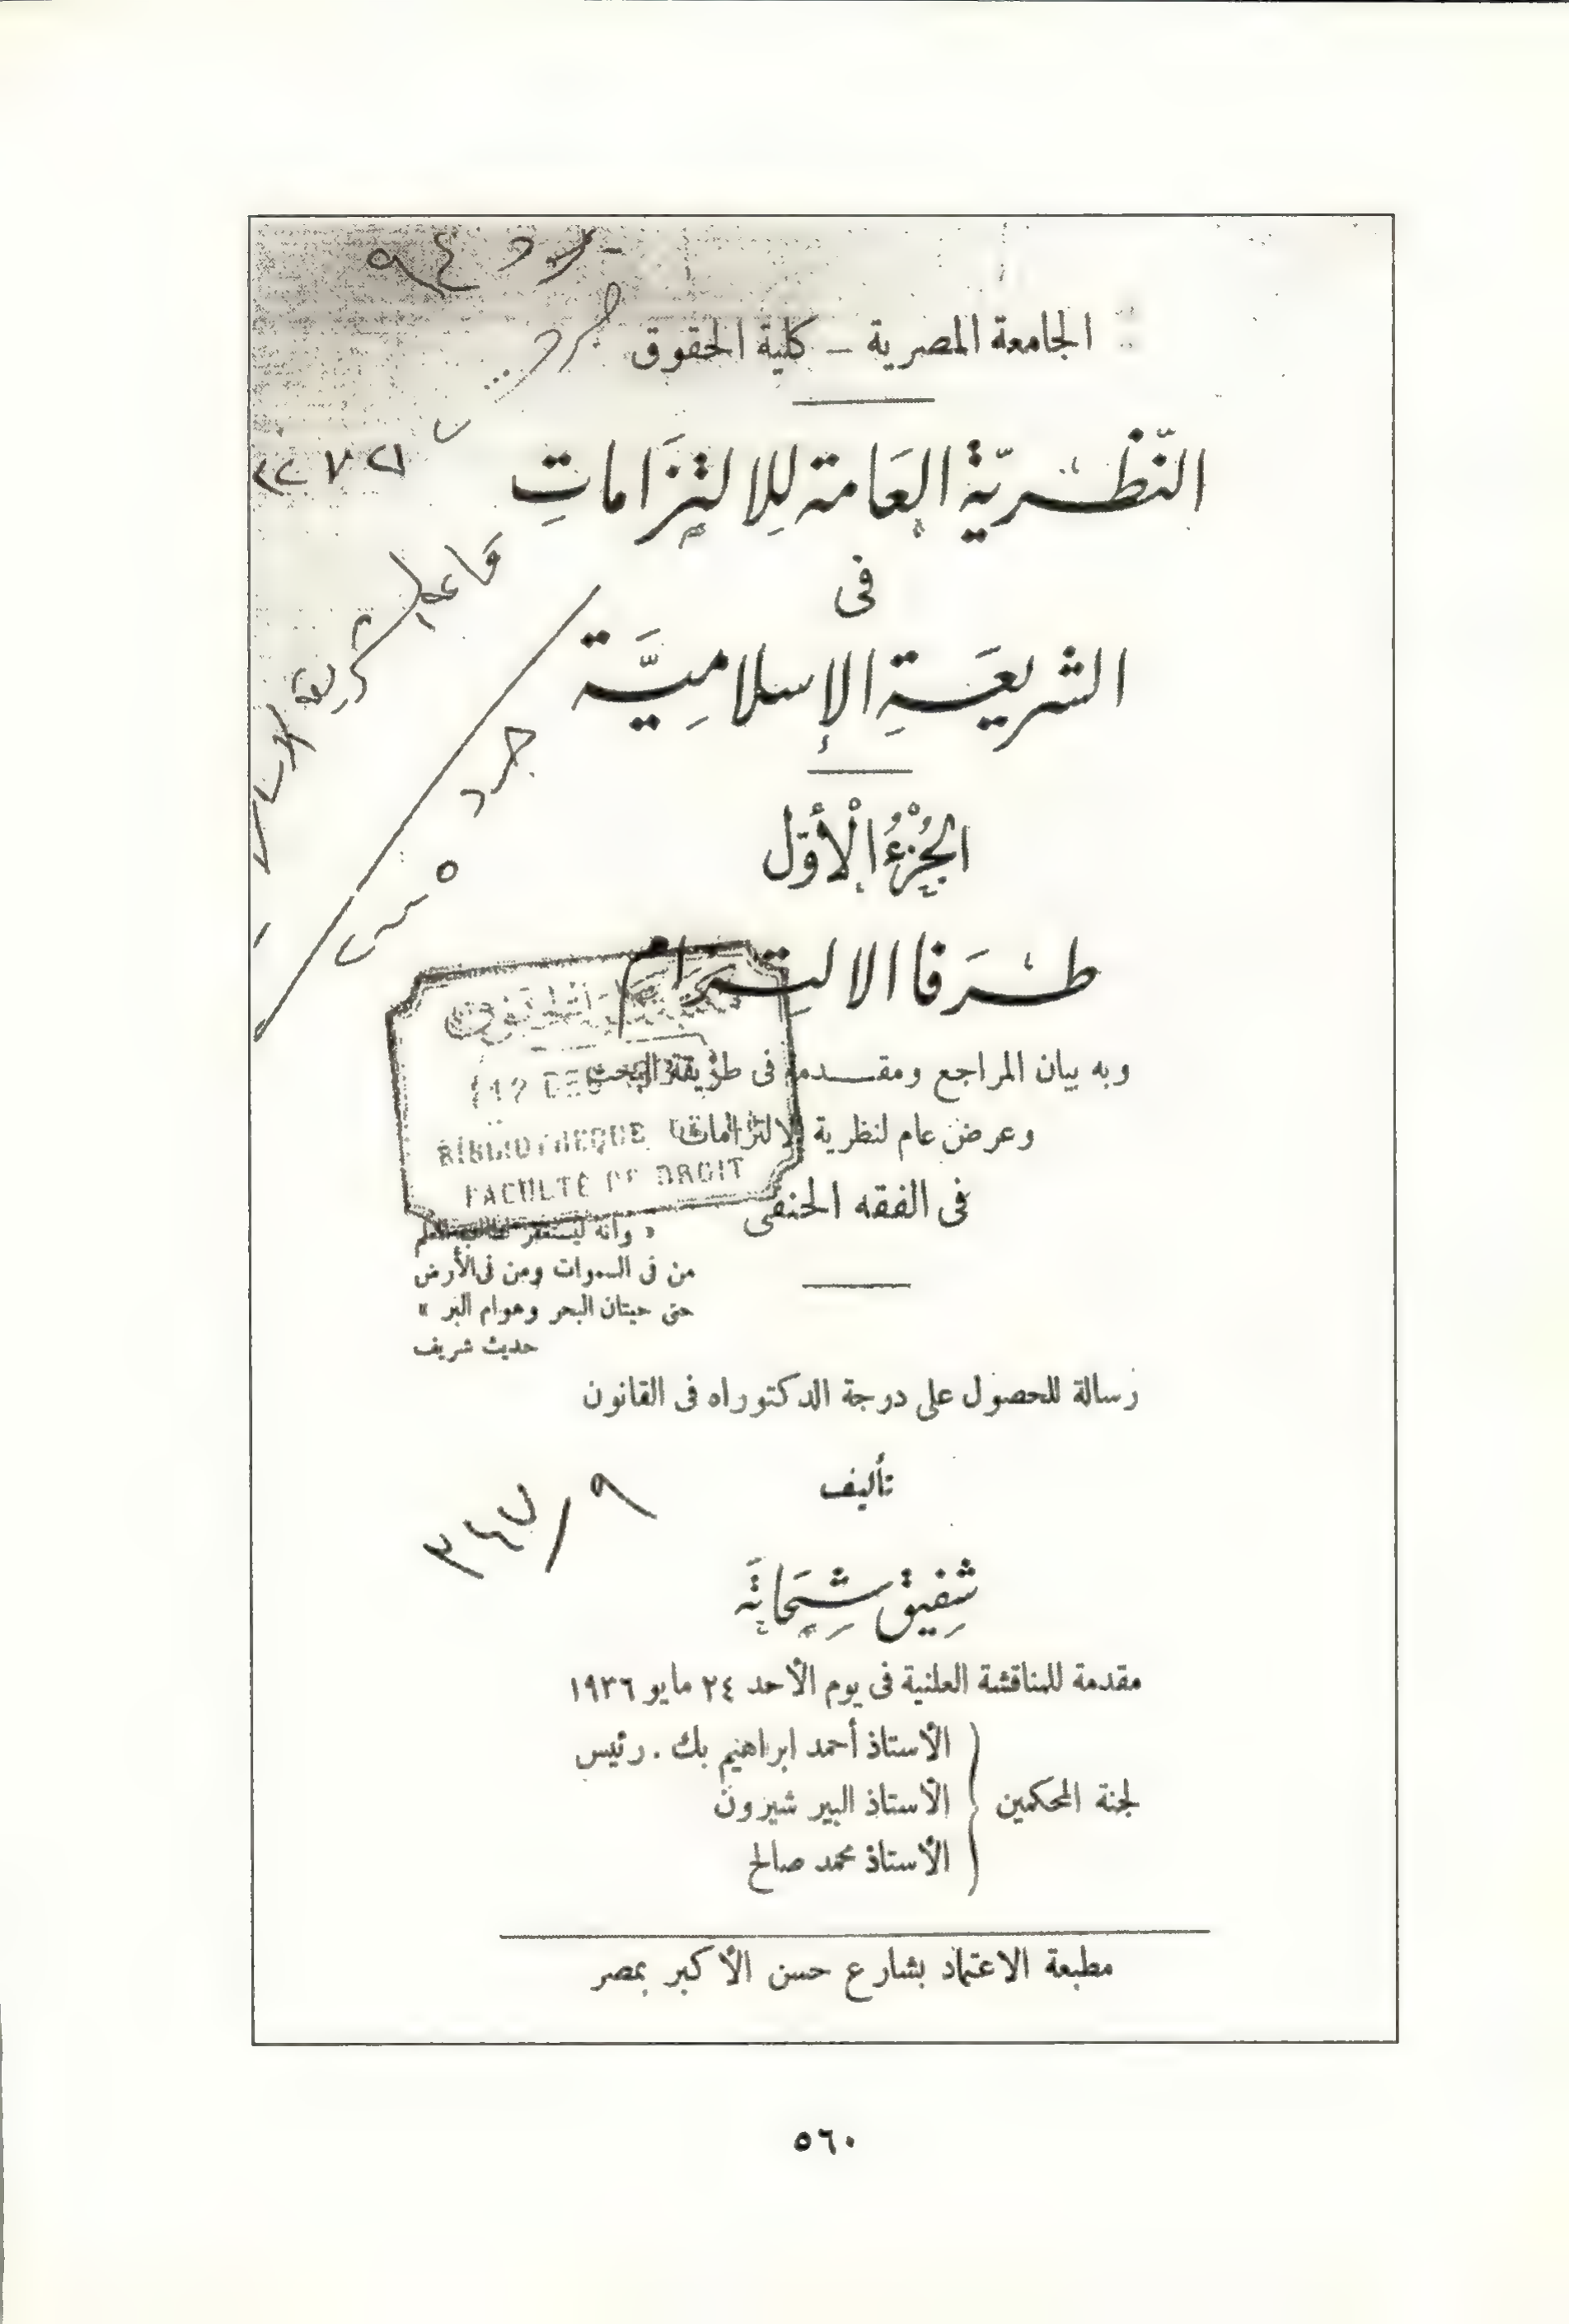 الجامعة المصرية – كلية الحقوق
النّظريّة العَامة للِالتزَاماتِ
فى
الشريعَةِ الإسلامِيَّة
الجُزْءُ الْأوّل
طرَفا الالتِزام
وبه بيان المراجع ومقدمة فى طريقة البحث
وعرض عام لنظرية الالتزامات
فى الفقه الحنفى
BIBLIOTHEQUE
FACULTE DE DROIT
« وانه ليستغفر لطالب العلم
من فى السموات ومن فى الأرض
حتى حيتان البحر وهوام البر »
حديث شريف
رسالة للحصول على درجة الدكتوراه فى القانون
تأليف
٣٤٧/٩
شفِيق شِحَاتَه
مقدمة للمناقشة العلنية فى يوم الأحد ٢٤ مايو ١٩٣٦
لجنة المحكمين
الأستاذ أحمد ابراهيم بك . رئيس
الأستاذ البير شيرون
الأستاذ محمد صالح
مطبعة الاعتماد بشارع حسن الأكبر بمصر
٥٦٠